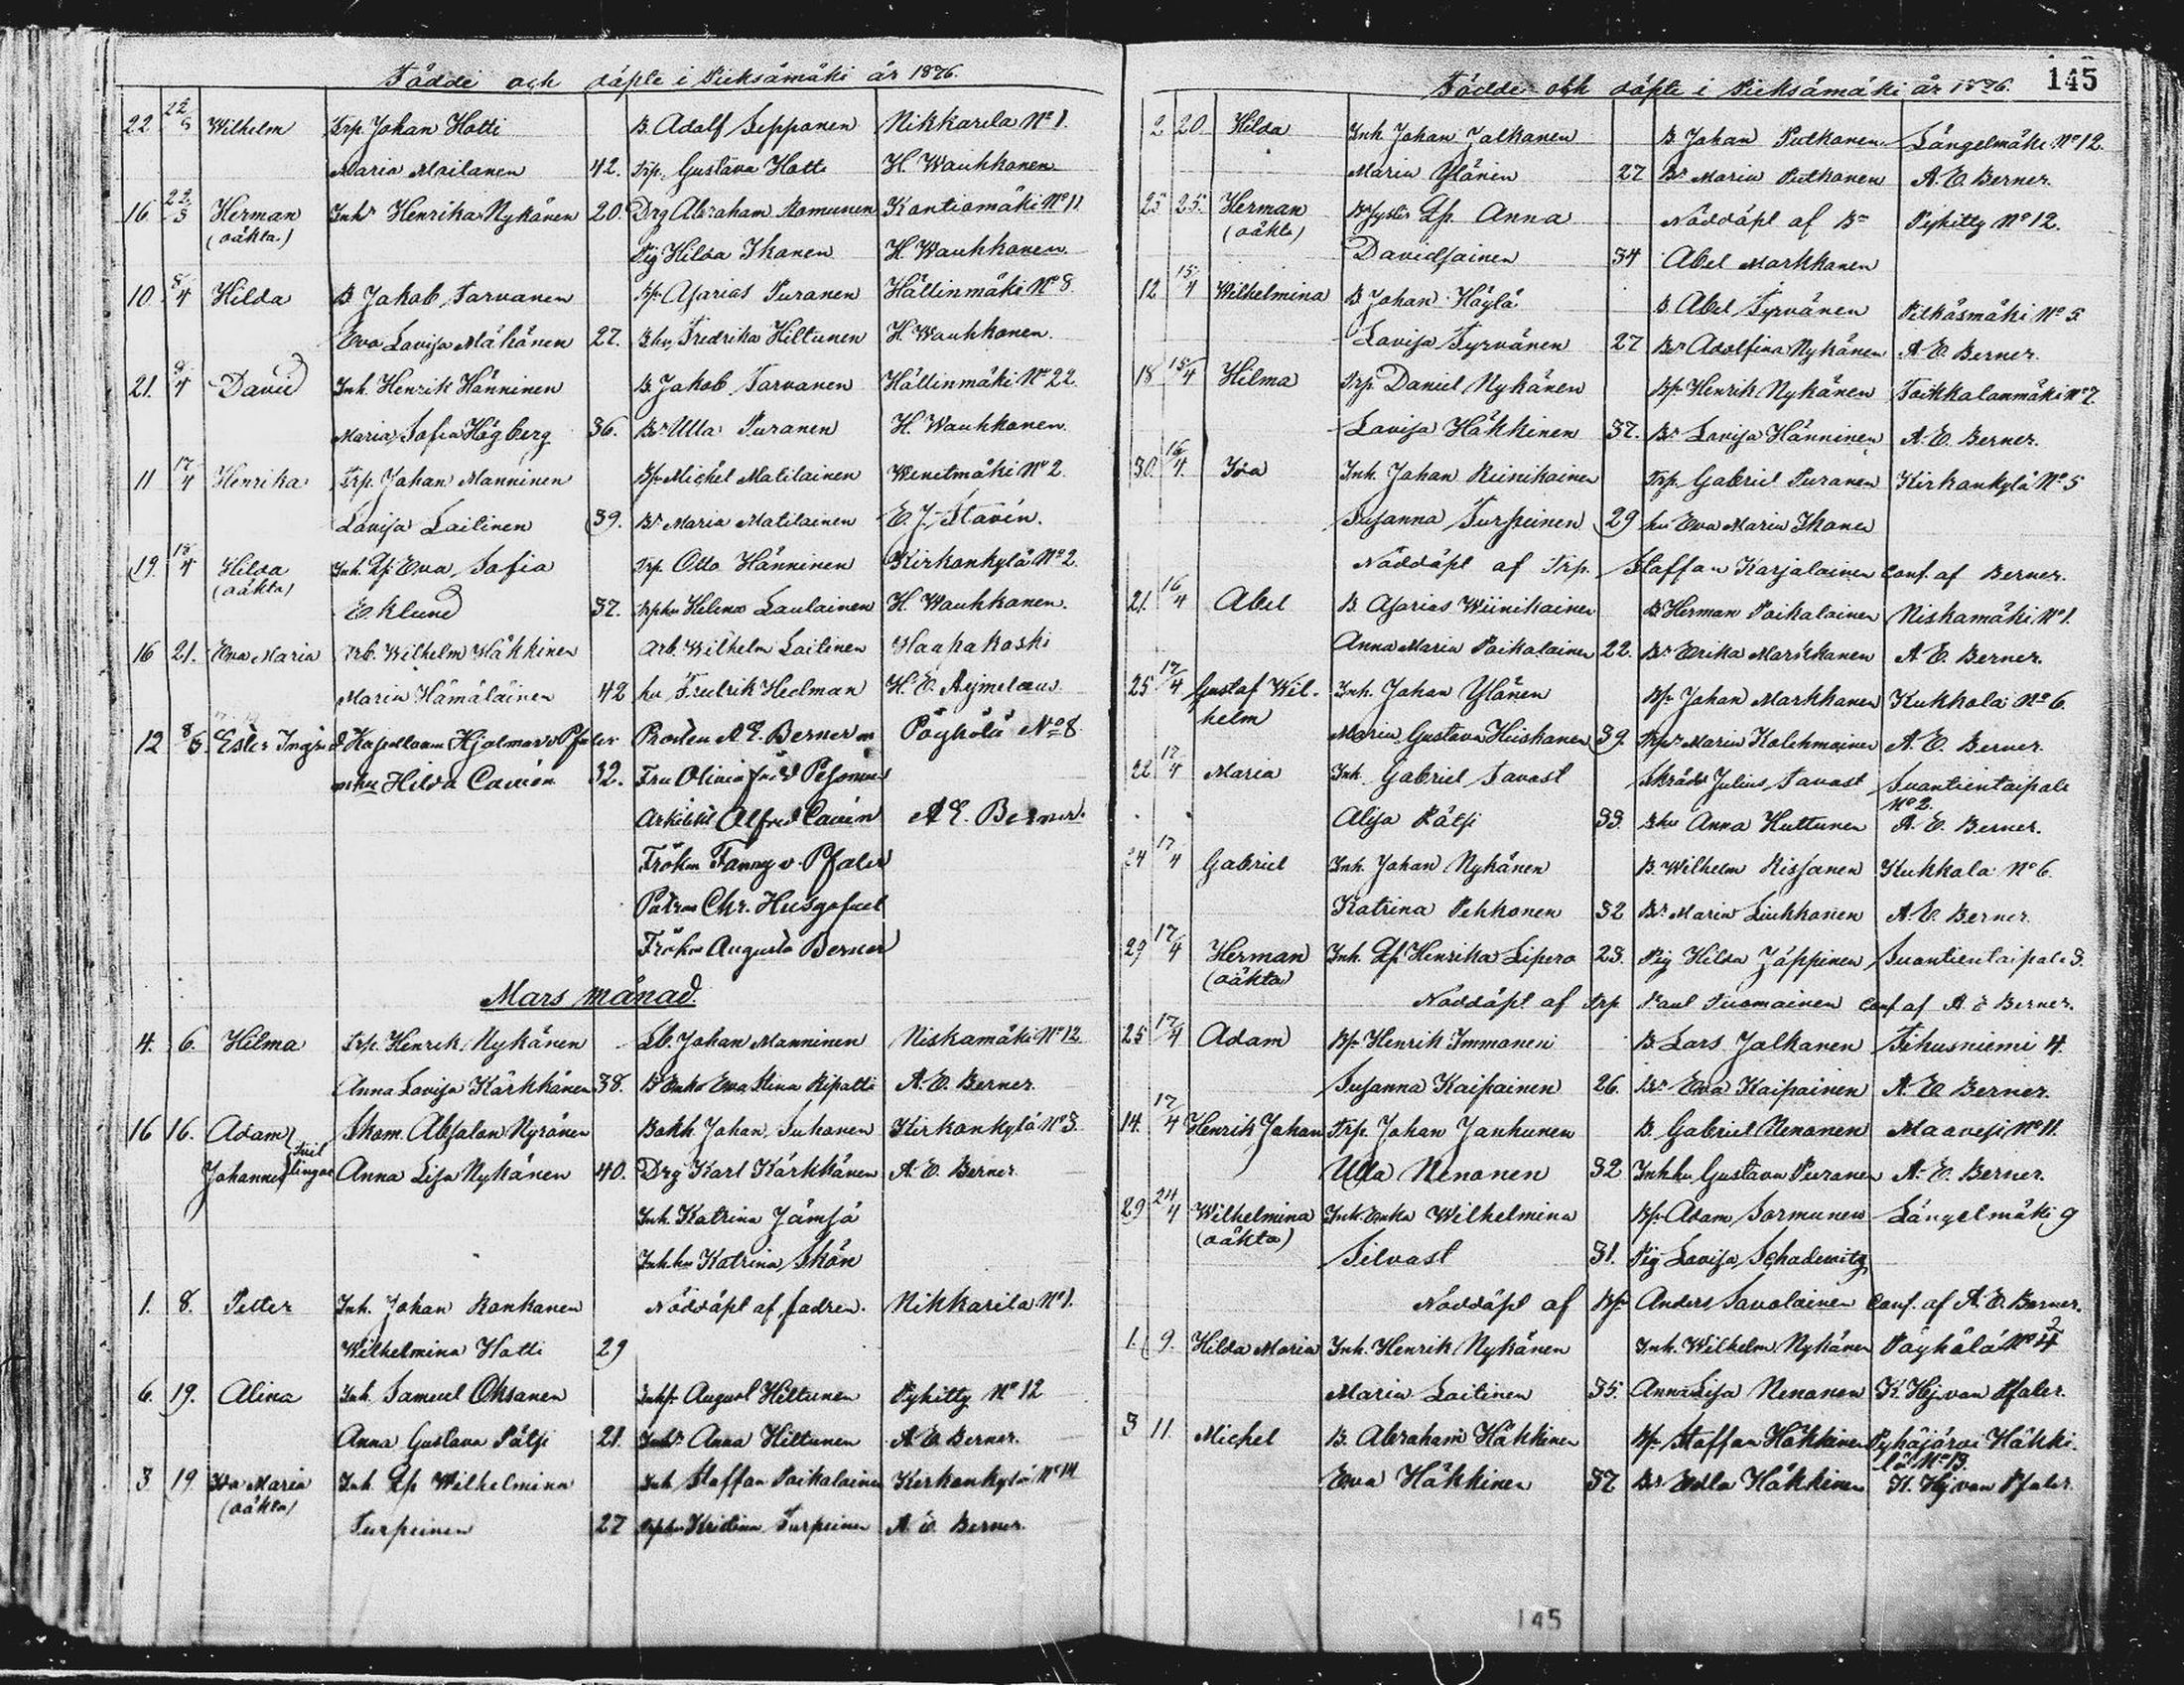 Födde och döpte i Pieksämäki år 1876.
22 22/3 Wilhelm Trp. Johan Hotti B. Adolf Sepponen Nikkarila No 1.
Maria Mailanen 42. Trp. Gustava Hotti H. Wauhkonen
16 22/3 Herman Inhs Henrika Nykänen 20. Drg Abraham Romunen Kontiomäki No 11
(oäkta) Pig Hilda Ikonen H. Wauhkonen.
10 8/4 Hilda B. Jakob Tarvanen Bp. Asarias Puranen Hällinmäki No 8.
Eva Lovisa Mähönen 27. Bhu Fredrika Hiltunen H. Wauhkonen.
21. 9/4 David Inh. Henrik Hänninen B. Jakob Tarvanen Hällinmäki No 22.
Maria Sofia Högberg 36. Bs Ulla Puranen H. Wauhkonen.
11 17/4 Henrika Trp. Johan Manninen Bp. Michel Matilainen Wenetmäki No 2.
Lovisa Laitinen 39. Bs Maria Matilainen E. J. Stavén.
19. 18/4 Hilda Inh. Qp. Eva Sofia Trp. Otto Hänninen Kirkonkylä No 2.
(oäkta) Eklund 37. Trphu Helena Laulainen H. Wauhkonen.
16 21. Eva Maria Arb. Wilhelm Häkkinen Arb. Wilhelm Laitinen Haapakoski
Maria Hämäläinen 42 hu Fredrik Hedman H. E. Aejmelæus
12 8/5. Ester Ingrid Kapellanen Hjalmar v. Pfaler Prosten A E. Berner Pöyhölä No 8
hu Hilda Cawén 32. Fru Olivia
Arkitekt Alfred Cawén A E. Berner.
Fröken Fanny v. Pfaler
Patron Chr. Husgafvel
Fröken Augusta Berner
Mars månad.
4. 6. Hilma Trp. Henrik Nykänen Lb. Johan Manninen Niskamäki No 12
Anna Lovisa Kärkkänen 38. B Enka Eva Stina Ripatti A. E. Berner.
16 16. Adam Skom. Absalon Nyrönen Bokh. Johan Suhonen Kirkonkylä No 3.
Johannes Tvillingar Anna Lisa Nykänen 40. Drg Karl Kärkkänen A. E. Berner
Inh. Katrina Jämsä
Inh.hu Katrina Skön
1. 8. Petter Inh. Johan Ronkanen Nöddöpt af fadren. Nikkarila No 1.
Wilhelmina Hotti 29
6. 19. Alina Inh. Samuel Oksanen Inhs. August Hiltunen Pyhitty No 12
Anna Gustava Pätsi 21. Inhds Anna Hiltunen A. E. Berner.
3 19. Eva Maria Inh. Qp Wilhelmina Inh Staffan Poikolainen Kirkonkylä No 14
(oäkta) Turpeinen 27 Trphu Kristina Turpeinen A. E. Berner.
Födde och döpte i Pieksämäki år 1876. 145
2 20. Hilda Inh. Johan Jalkanen B Johan Putkonen Längelmäki No 12.
Maria Ylönen 27 Bs Maria Putkonen A. E. Berner.
25 25. Herman Bsyster Qp. Anna Nöddöpt af Bn Pyhitty No 12.
(oäkta) Davidsainen 34 Abel Markkanen
12 15/4 Wilhelmina B Johan Häylä B. Abel Tyrvänen Pitkäsmäki No 5.
Lovisa Tyrvänen 27 Bs Adolfina Nykänen A. E. Berner.
18 15/4 Hilma Trp. Daniel Nykänen Bp. Henrik Nykänen Toikkalanmäki No 7.
Lovisa Häkkinen 37. Bs Lovisa Hänninen A. E. Berner.
30. 16/4. Ida Inh. Johan Reinikainen Trp. Gabriel Puranen Kirkonkylä No 5
Susanna Turpeinen 29 hu Eva Maria Ikonen
Nöddöpt af Trp. Staffan Karjalainen Conf. af Berner.
21. 16/4 Abel B. Asarias Wiinikainen B Herman Poikolainen Niskamäki No 1.
Anna Maria Poikolainen 22. Bs Erika Markkanen A. E. Berner.
25 17/4 Gustaf Wil- Inh. Johan Ylönen Bp. Johan Markkanen Kukkola No 6.
helm Maria Gustava Hiiskanen 39. Trps Maria Kolehmainen A. E. Berner.
22 17/4 Maria Inh. Gabriel Savast Skrädd Julius Savast Suontientaipale
No 2.
Alisa Pätsi 33. Bhu Anna Huttunen A. E. Berner.
24 17/4 Gabriel Inh. Johan Nykänen B. Wilhelm Rissanen Kukkola No 6.
Katrina Pekkonen 32 Bs Maria Liukkonen A. E. Berner.
29 17/4 Herman Inh. Qp. Henrika Lipero 23. Pig Hilda Jäppinen Suontientaipale 3.
(oäkta) Nöddöpt af Trp Paul Tuomainen Conf af A. E Berner.
25 17/4 Adam Bp. Henrik Immonen B. Lars Jalkanen Tihusniemi 4.
Susanna Kaipainen 26. Bs Eva Kaipainen A. E Berner.
14. 17/4 Henrik Johan Trp. Johan Janhunen B. Gabriel Nenonen Maavesi No 11.
Ulla Nenonen 32 Inh.hu Gustava Puranen A. E. Berner.
29 24/4 Wilhelmina Inh. Enka Wilhelmina Bp. Adam Sormunen Längelmäki 9
(oäkta) Silvast 31. Pig Lovisa Schadewitz
Nöddöpt af Bp. Anders Savolainen Conf. af A. E. Berner.
1. 9. Hilda Maria Inh. Henrik Nykänen Inh. Wilhelm Nykänen Pöyhölä No 4
Maria Laitinen 35. Anna Lisa Nenonen K. Hj. van Pfaler.
3 11. Michel B. Abraham Häkkinen Bp. Staffan Häkkinen Pyhäjärvi Häkki-
lä No 13.
Eva Häkkinen 37 Bs Edla Häkkinen K. Hj van Pfaler.
145